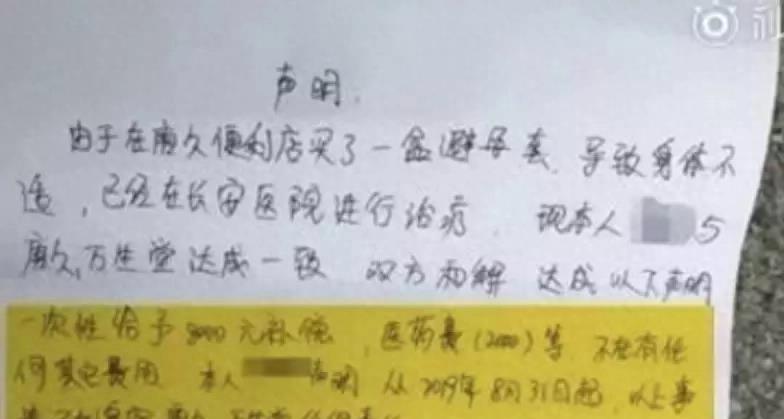 声明.
由于在唐久便利店买了一盒避孕套.导致身体不
适,已经在长安医院进行治疗.现本人 与
唐久,万生堂达成一致 双方和解 达成以下声明
一次性给予8000元补偿,医药费(2000)等,不在有任
何其它费用 本人 声明 从2019年8月31日起,以上事